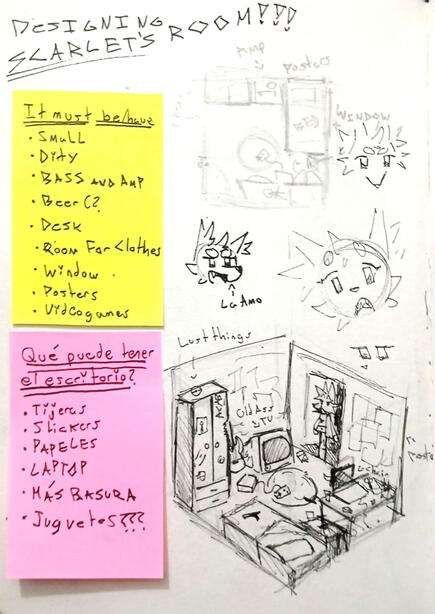 DESIGNING
SCARLET'S ROOM!!!
It must be/have
• Small
• Dity
• BASS AND AMP
• Beer C?
• Desk
• Room For Clothes
• Window
• Posters
• Videogames
Amp
Posters
WINDOW
La Amo
Qué puede tener
el escritorio?
• Tijeras
• Stickers
• PAPELES
• LAPTOP
• MÁS BASURA
• Juguetes???
Lust things
Old Ass
TV